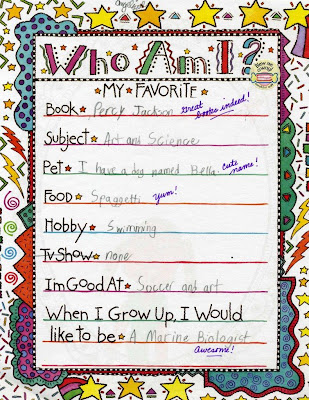 Who Am I?
MY FAVORITE
Book Percy Jackson Great books indeed!
Subject Art and Science
Pet I have a dog named Bella. cute name!
Food Spagetti yum!
Hobby Swimming
TV Show none
I'm Good At Soccer and art
When I Grow Up, I Would
like to be A Marine Biologist
awesome!